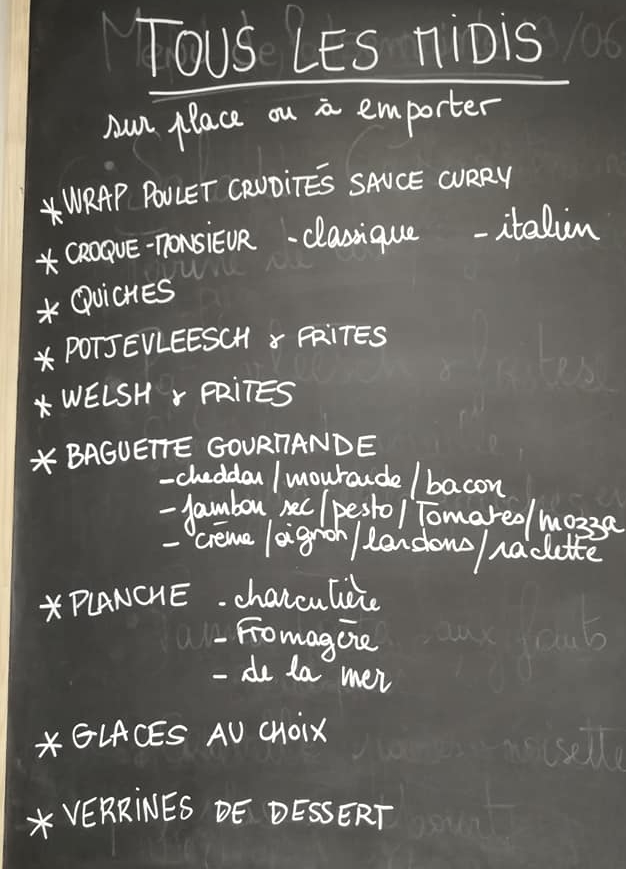 TOUS LES MIDIS
sur place ou à emporter
* WRAP POULET CRUDITÉS SAUCE CURRY
* CROQUE-MONSIEUR - classique - italien
* QUICHES
* POTJEVLEESCH & FRITES
* WELSH & FRITES
* BAGUETTE GOURMANDE
- cheddar / moutarde / bacon
- Jambon sec / pesto / Tomates / mozza
- crème / oignon / lardons / raclette
* PLANCHE - charcutière
- Fromagère
- de la mer
* GLACES AU CHOIX
* VERRINES DE DESSERT